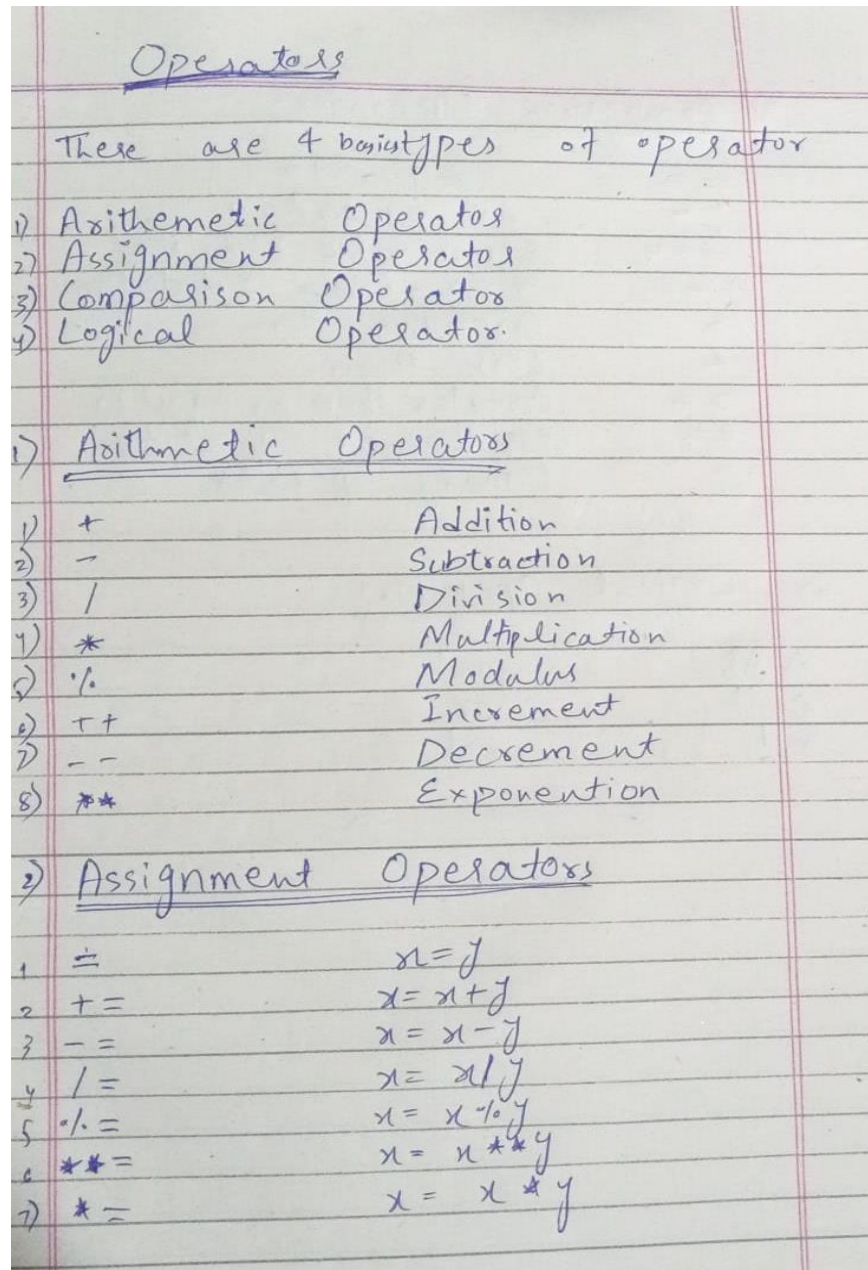 Operators
These are 4 basic types of operator
1) Arithemetic Operator
2) Assignment Operator
3) Comparison Operator
4) Logical Operator.
1) Arithmetic Operators
1) + Addition
2) - Subtraction
3) / Division
4) * Multiplication
5) % Modulus
6) ++ Increment
7) -- Decrement
8) ** Exponention
2) Assignment Operators
1 = x=y
2 += x=x+y
3 -= x=x-y
4 /= x=x/y
5 %= x=x%y
6 **= x=x**y
7) *= x=x*y